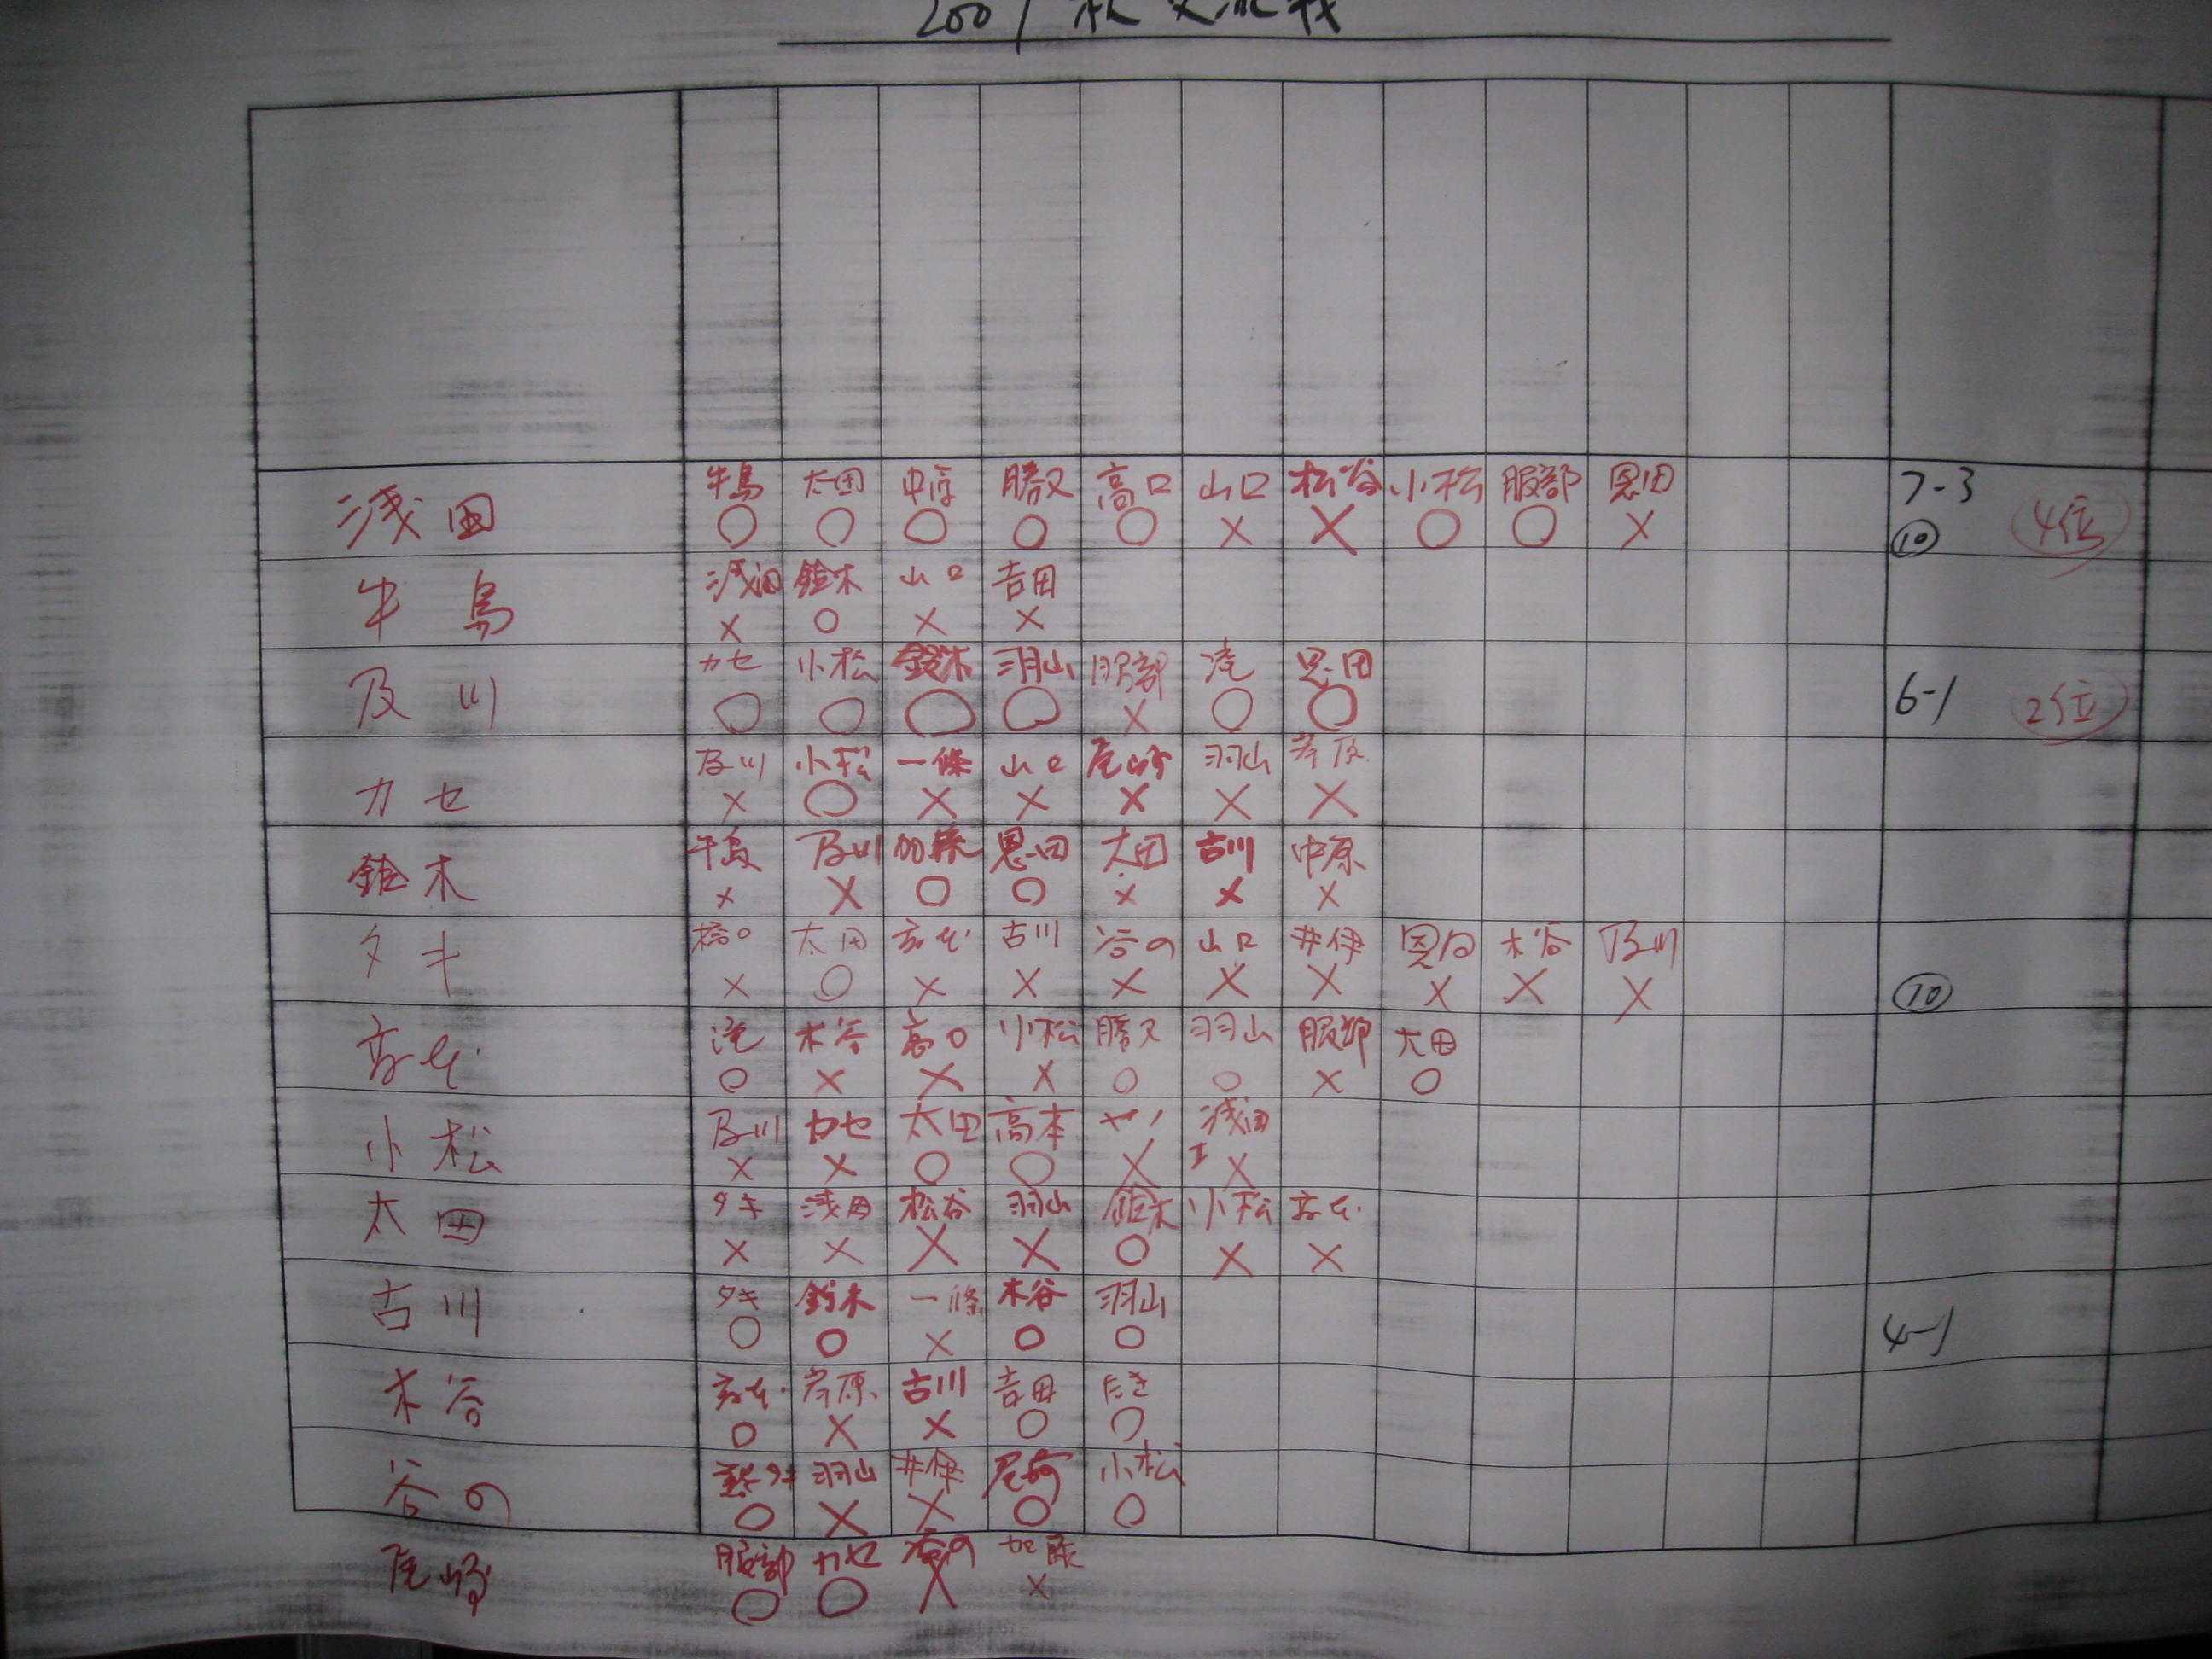 浅田 牛島 太田 中原 勝又 高口 山口 松谷 小松 服部 恩田 7-3
○ ○ ○ ○ ○ × × ○ ○ × ⑩ 4位
牛島 浅田 鈴木 山口 吉田
× ○ × ×
及川 カセ 小松 鈴木 羽山 服部 滝 恩田 6-1 2位
○ ○ ○ ○ × ○ ○
カセ 及川 小松 一條 山口 尾崎 羽山
× ○ × × × × ×
鈴木 牛島 及川 加藤 恩田 太田 古川 中原
× × ○ ○ × × ×
タキ 太田 古川 谷の 山口 井伊 恩田 木谷 及川
× ○ × × × × × × × × ⑩
滝 木谷 高口 小松 勝又 羽山 服部 太田
○ × × × ○ ○ × ○
小松 及川 カセ 太田 高本 ヤノ 浅田
× × ○ ○ × ×
太田 タキ 浅田 松谷 羽山 鈴木 小松
× × × × ○ × ×
古川 タキ 鈴木 一條 木谷 羽山 4-1
○ ○ × ○ ○
木谷 古川 吉田 たき
○ × × ○ ○
谷の タキ 羽山 井伊 尾崎 小松
○ × × ○ ○
尾崎 服部 カセ 谷の 加藤
○ ○ × ×